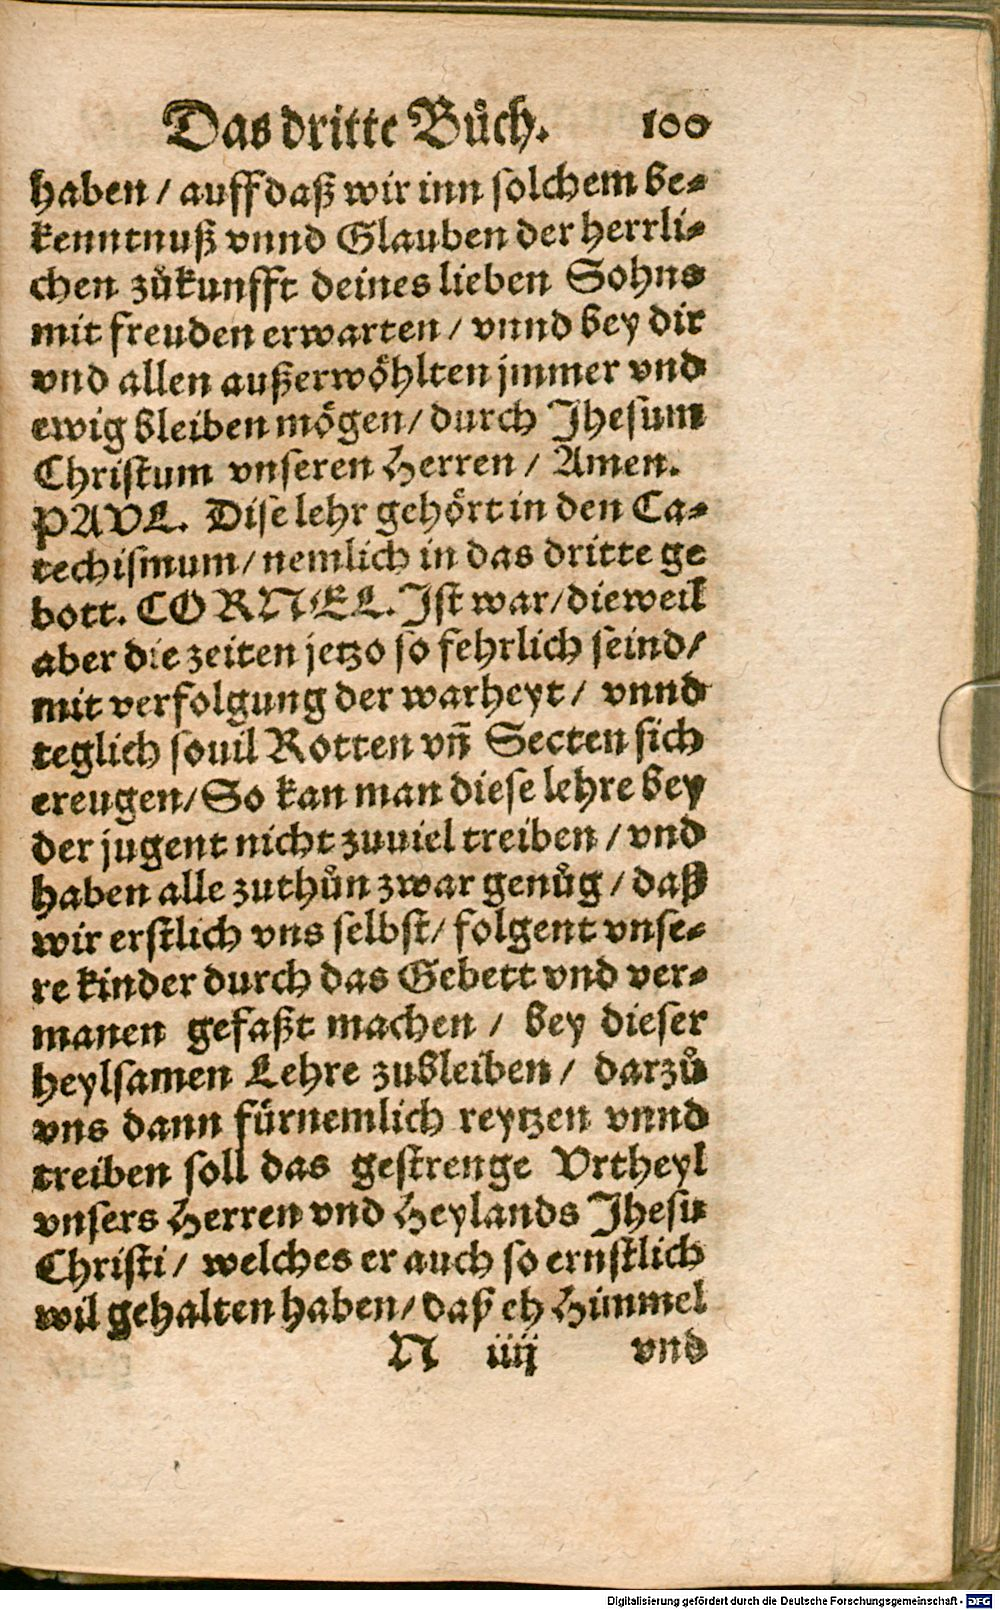 Das dritte Bůch. 100
haben / auff daß wir inn solchem be⸗
kenntnuß vnnd Glauben der herrli⸗
chen zůkunfft deines lieben Sohns
mit freuden erwarten / vnnd bey dir
vnd allen außerwöhlten jmmer vnd
ewig bleiben mögen / durch Jhesum
Christum vnseren Herren / Amen.
PAVL. Dise lehr gehört in den Ca⸗
techismum / nemlich in das dritte ge
bott. CORNEL. Jst war / dieweil
aber die zeiten jetzo so fehrlich seind /
mit verfolgung der warheyt / vnnd
teglich souil Rotten vñ Secten sich
ereugen / So kan man diese lehre bey
der jugent nicht zuuiel treiben / vnd
haben alle zuthůn zwar genůg / daß
wir erstlich vns selbst / folgent vnse⸗
re kinder durch das Gebett vnd ver⸗
manen gefaßt machen / bey dieser
heylsamen Lehre zubleiben / darzů
vns dann fürnemlich reytzen vnnd
treiben soll das gestrenge Vrtheyl
vnsers Herren vnd Heylands Jhesu
Christi / welches er auch so ernstlich
wil gehalten haben / daß eh Himmel
N iiij vnd
Digitalisierung gefördert durch die Deutsche Forschungsgemeinschaft - DFG